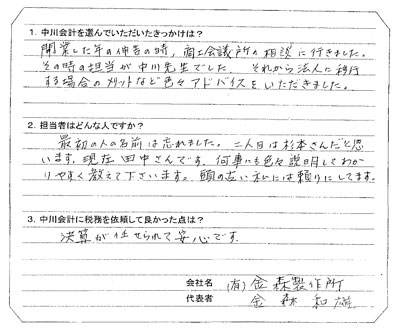 1. 中川会計を選んでいただいたきっかけは？
開業した年の申告の時、商工会議所の相談に行きました。
その時の担当が中川先生でした。それから法人に移行
する場合のメリットなど色々アドバイスをいただきました。
2. 担当者はどんな人ですか？
最初の人の名前は忘れました。二人目は杉本さんだと思
います。現在田中さんです。何事にも色々説明してわか
りやすく教えて下さいます。頭の古い私には頼りにしてます。
3. 中川会計に税務を依頼して良かった点は？
決算が任せられて安心です。
会社名 (有)金森製作所
代表者 金森和雄